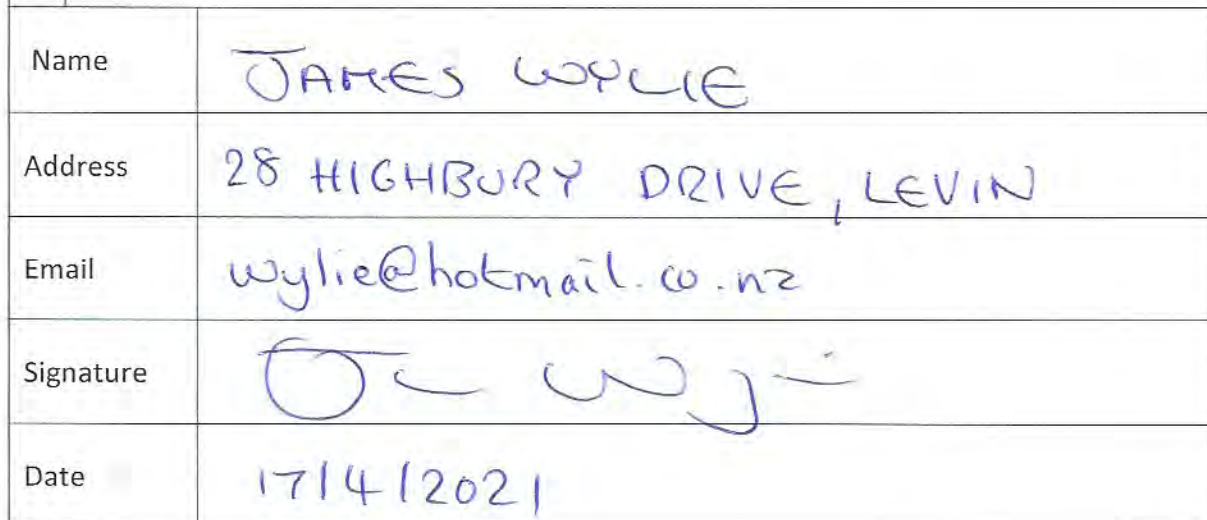 Name JAMES WYLIE
Address 28 HIGHBURY DRIVE, LEVIN
Email wylie@hotmail.co.nz
Signature
Date 17/4/2021